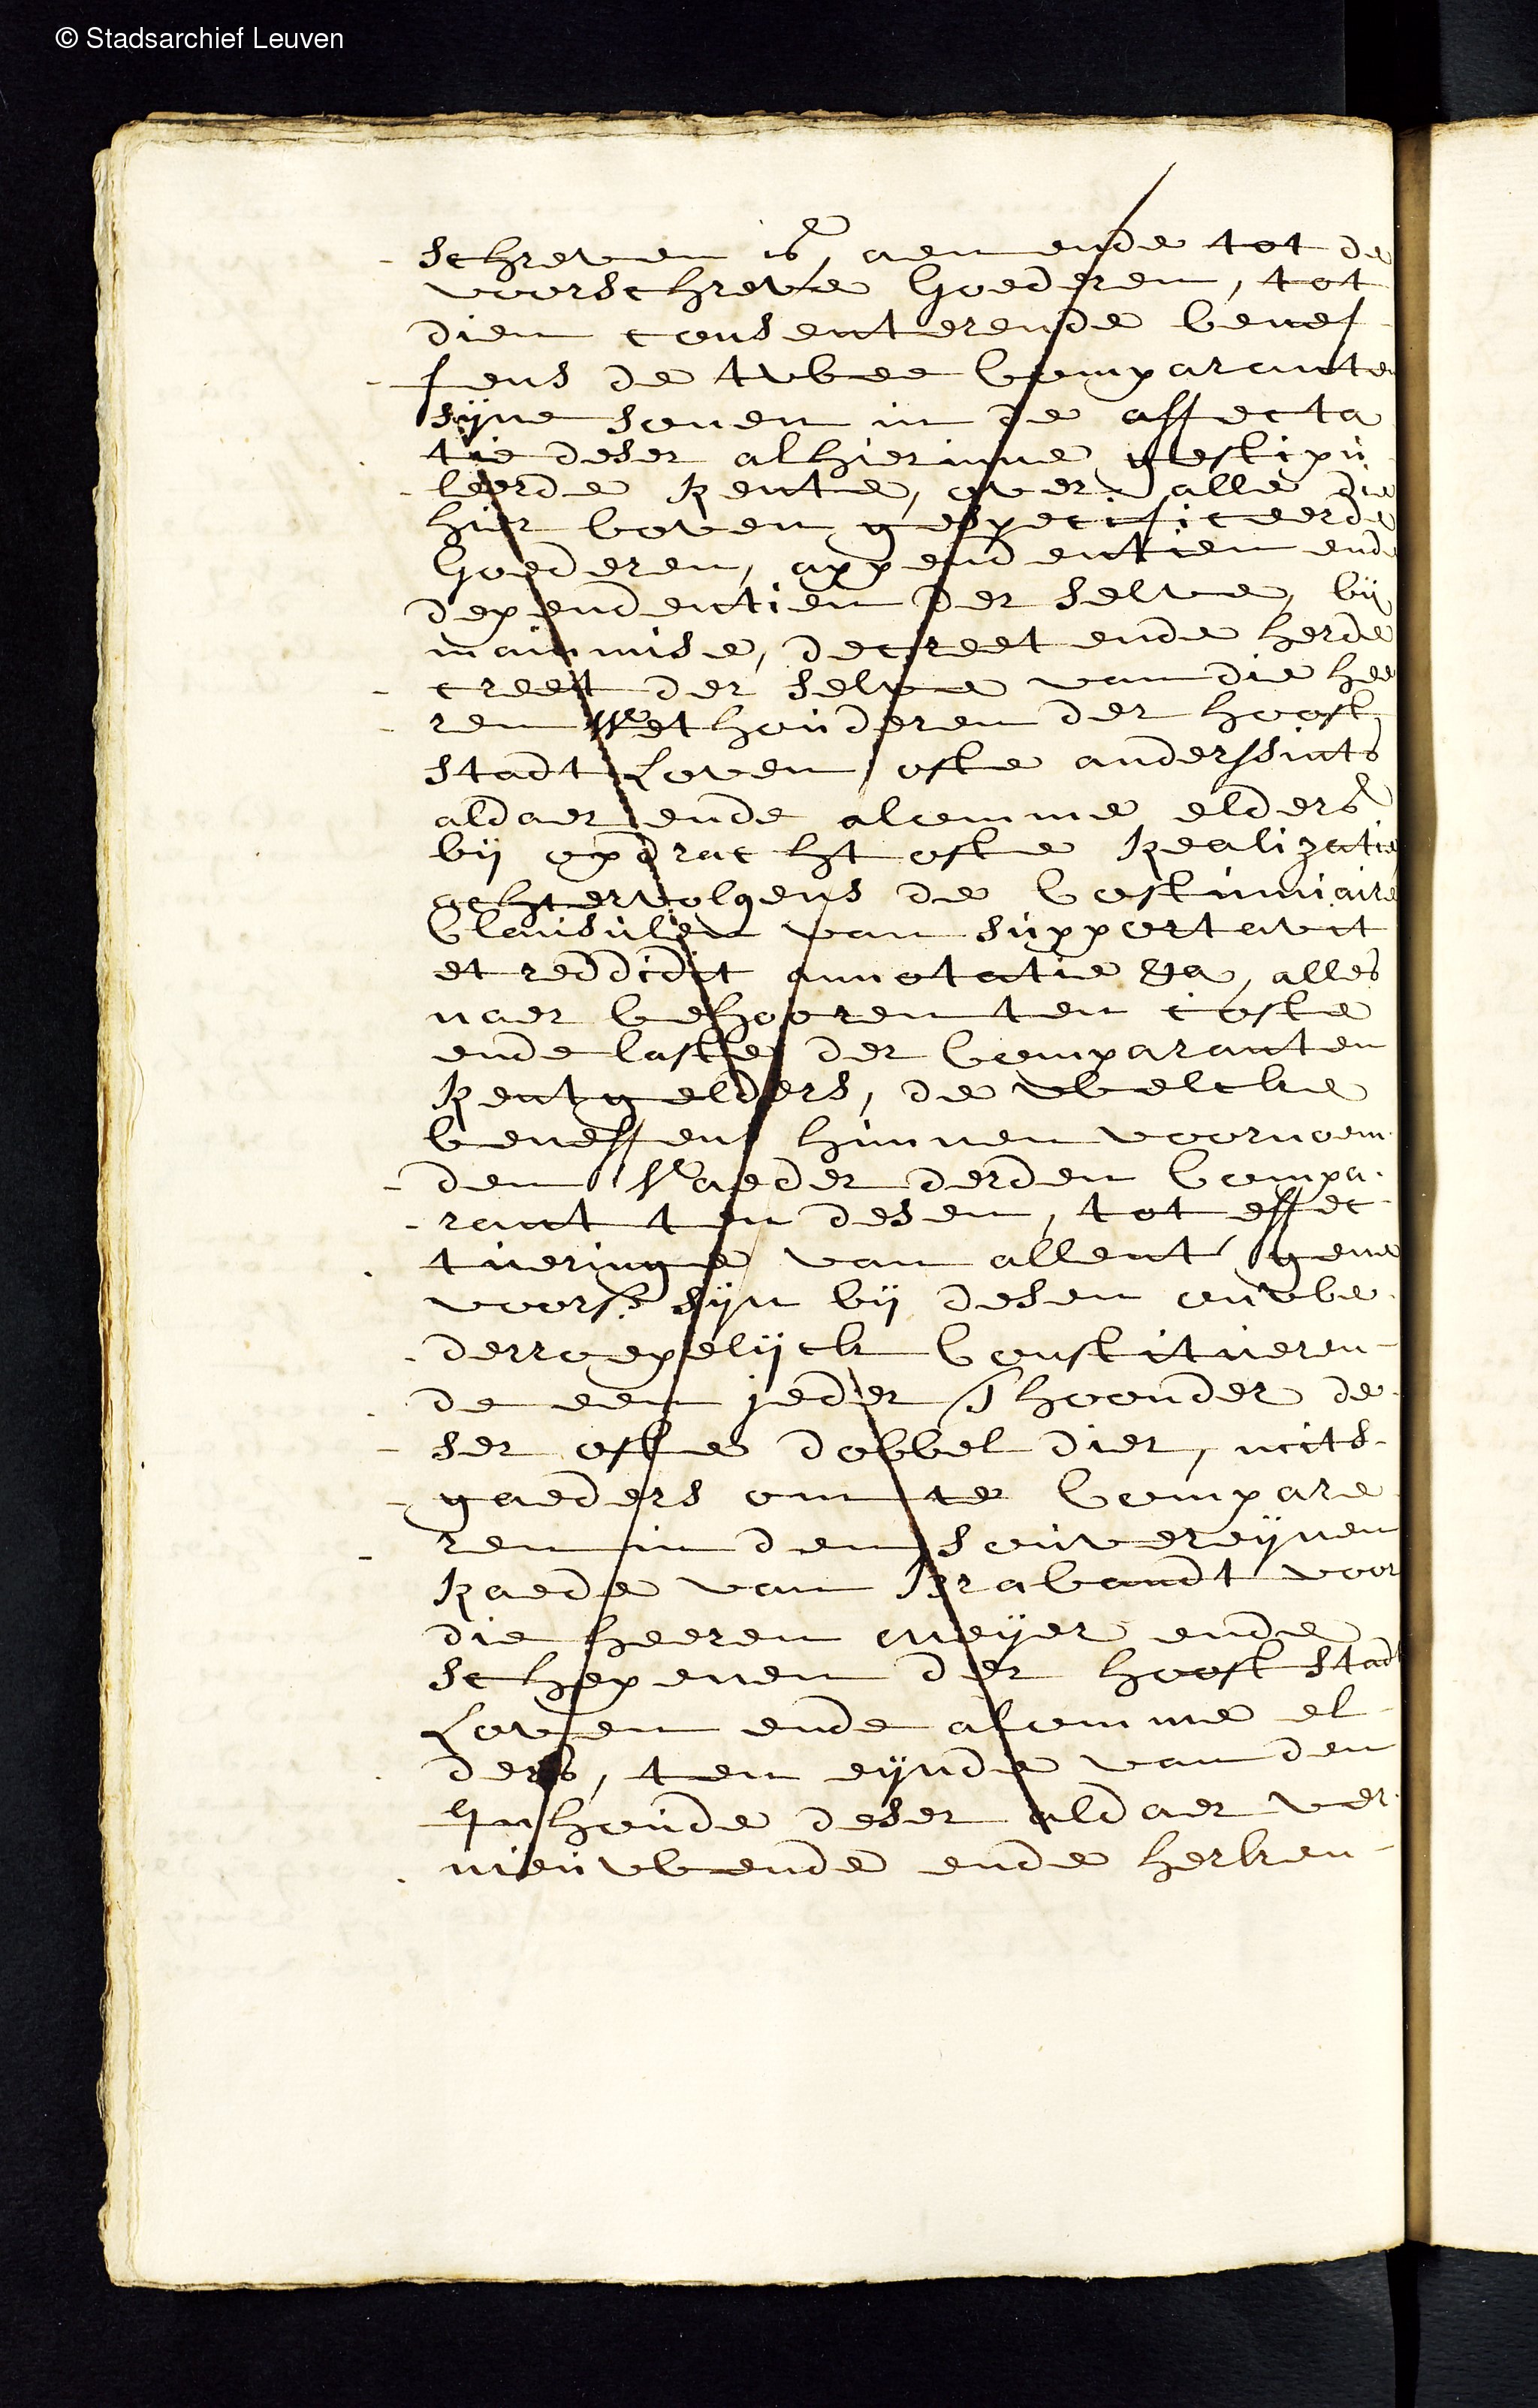 © Stadsarchief Leuven
schreven is, aen ende tot de
voorschreve Goederen, tot
dien consenterende benef
fens de twee Comparante
sijne sonen in de affecta
tie deser alhierinne gestipu
leerde Rente, over alle die
hier boven gespecificeerde
Goederen, appendentien ende
dependentien der selve, bij
mainmise, decreet ende herde
creet der selve van die hee
ren Wethouderen der hooft
stadt Loven, ofte anderssints
aldaer ende alomme elders
bij opdracht ofte Realizatie
achtervolgens de Costumiaire
Clausulen van supportavit
et reddidit annotatie &a, alles
naer behooren ten coste
ende laste der Comparanten
Rentgelders, de welcke
beneffens hunnen voornoem
den Vaeder derden Compa
rant ten desen, tot effec
tueringe van allent' gene
voors. sijn bij desen onwe
derroepelijck Constitueren
de een jeder Thoonder de
ser ofte dobbel dier, mits
gaeders om te Compare
ren in den souvereijnen
Raede van Brabandt voor
die heeren Meijer ende
schepenen der hooft stadt
Loven ende alomme el
ders, ten eijnde van den
Inhoude deser aldaer ver
nieuwende ende herken